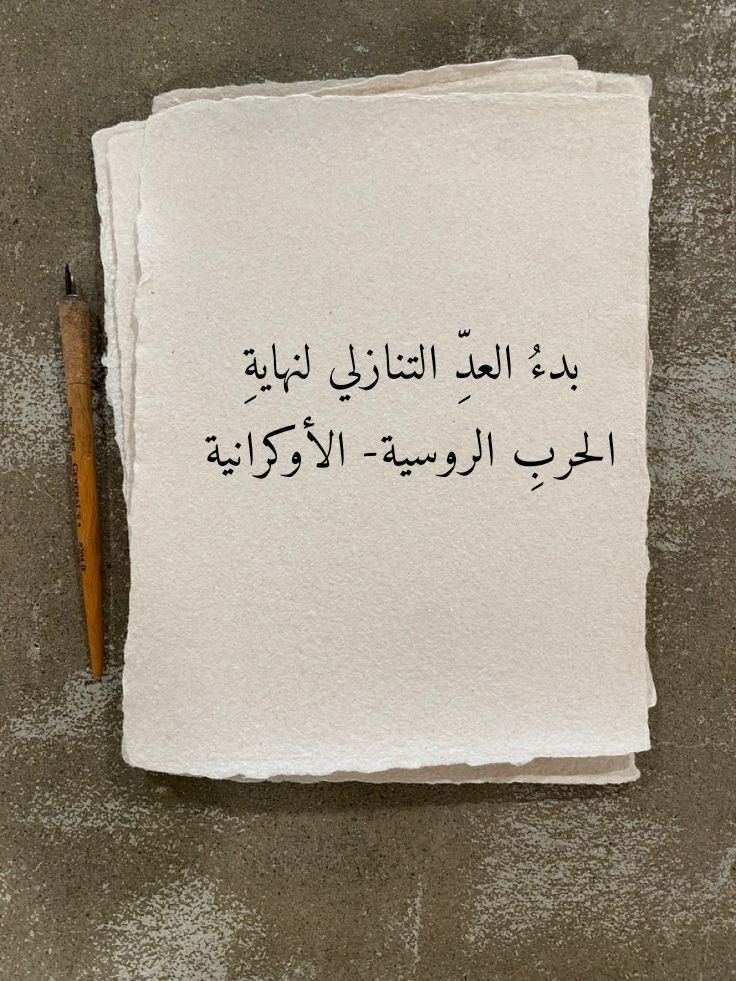 بدءُ العدِّ التنازلي لنهايةِ
الحربِ الروسية- الأوكرانية